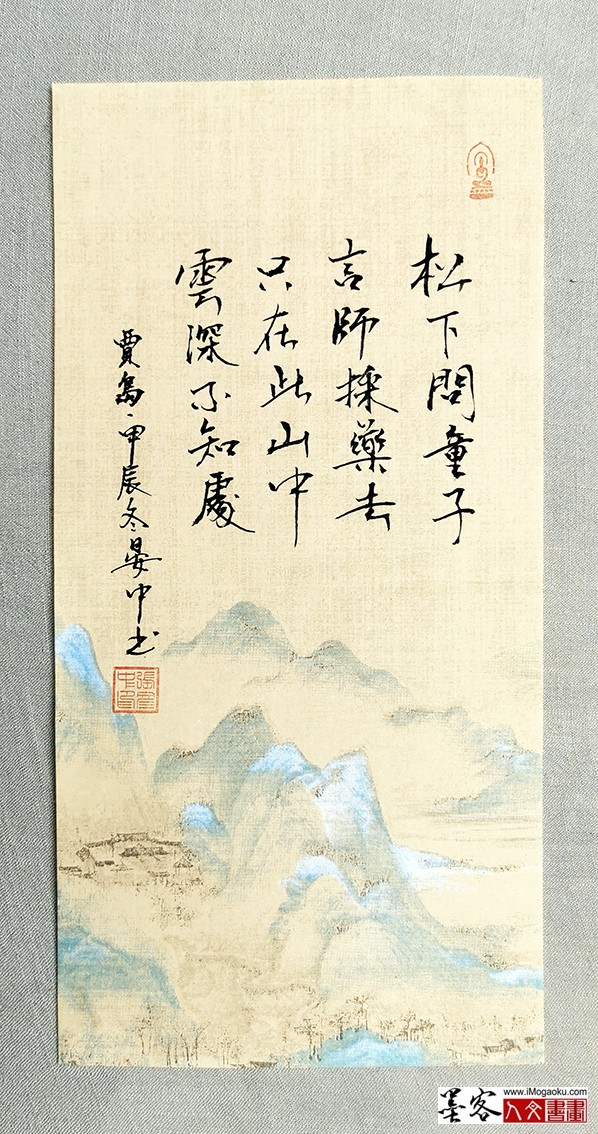 松下問童子
言師採藥去
只在此山中
雲深不知處
賈島·甲辰冬晏中书
www.iMogaoku.com
墨客
人文書畫